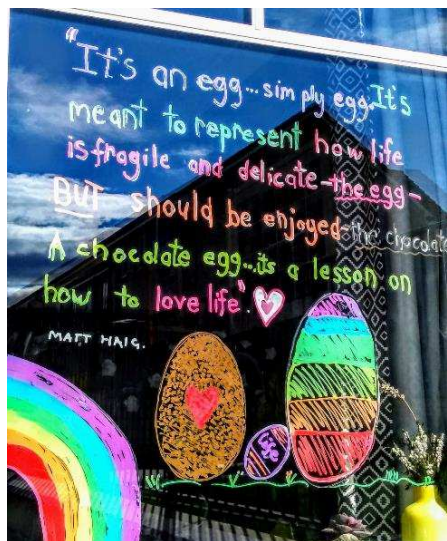 "It's an egg...simply egg. It's
meant to represent how life
is fragile and delicate-the egg-
BUT should be enjoyed-the chocolate
A chocolate egg...its a lesson on
how to love life".
MATT HAIG.
Life